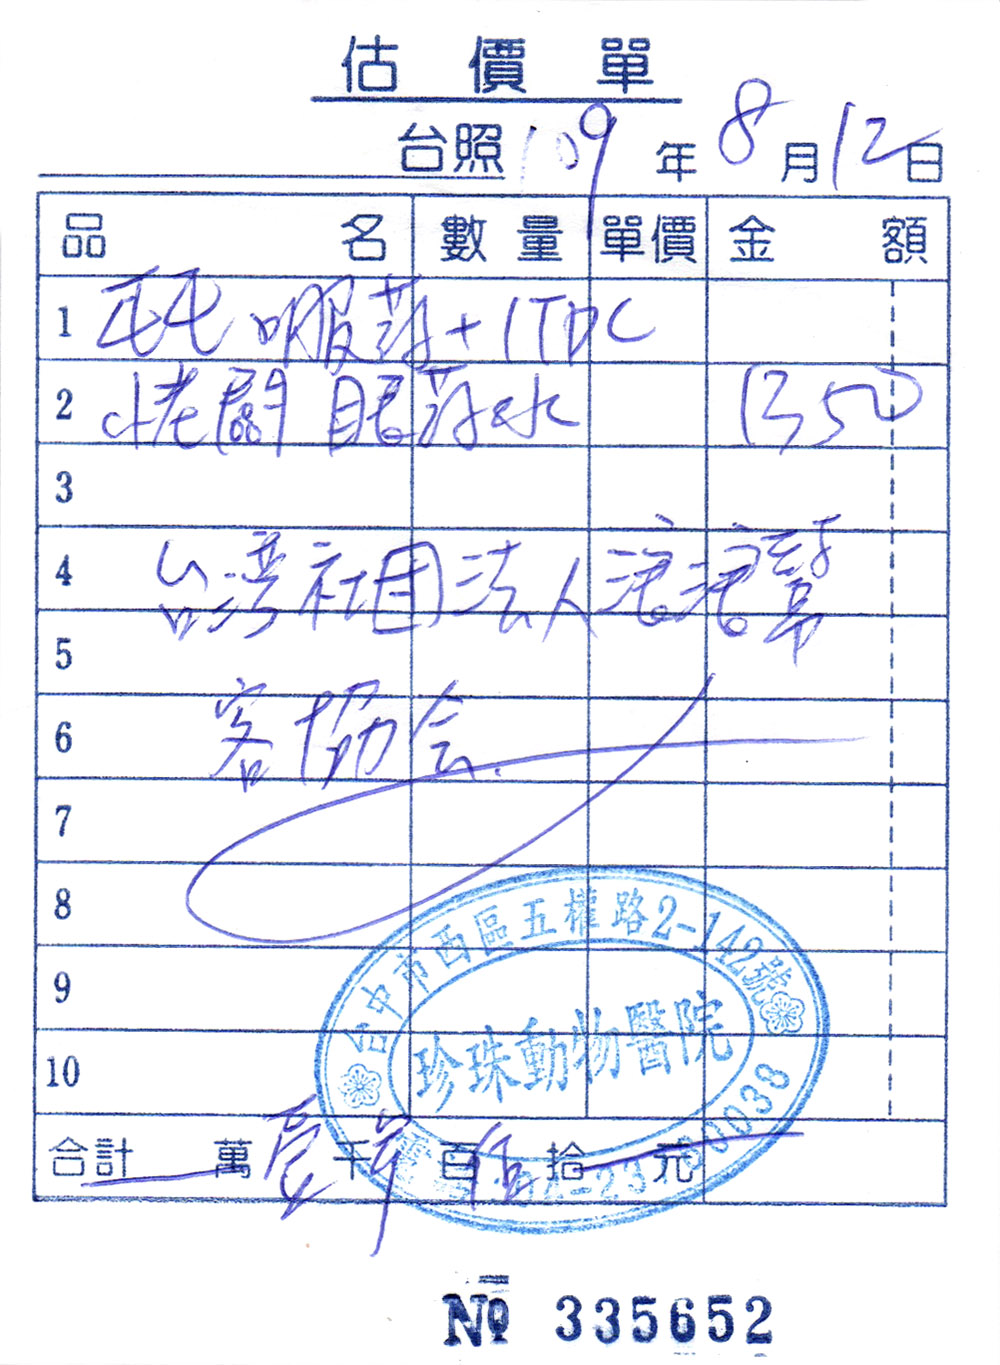 估價單
台照 109年8月12日
品名 數量 單價 金額
1 毛毛 口服葯+1TDC
2 眼葯水 1350
3
4 台灣社團法人浪浪幫
5
6 客協会.
7
8
9
10
合計 萬 千 百 拾 元
台中市西區五權路2-142號
珍珠動物醫院
№ 335652